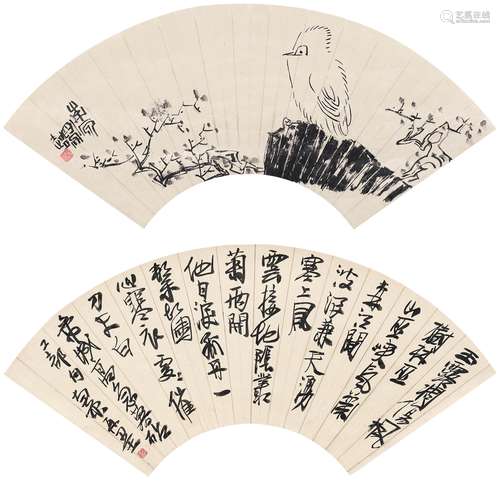 艺狐在线
玉露凋傷楓
樹林巫
山巫峡氣蕭
森江間
波浪兼天湧
塞上風
雲接地陰叢
菊兩開
他日淚孤舟一
繫故園
心寒衣處處催
刀尺白
帝城高急暮砧
工部句